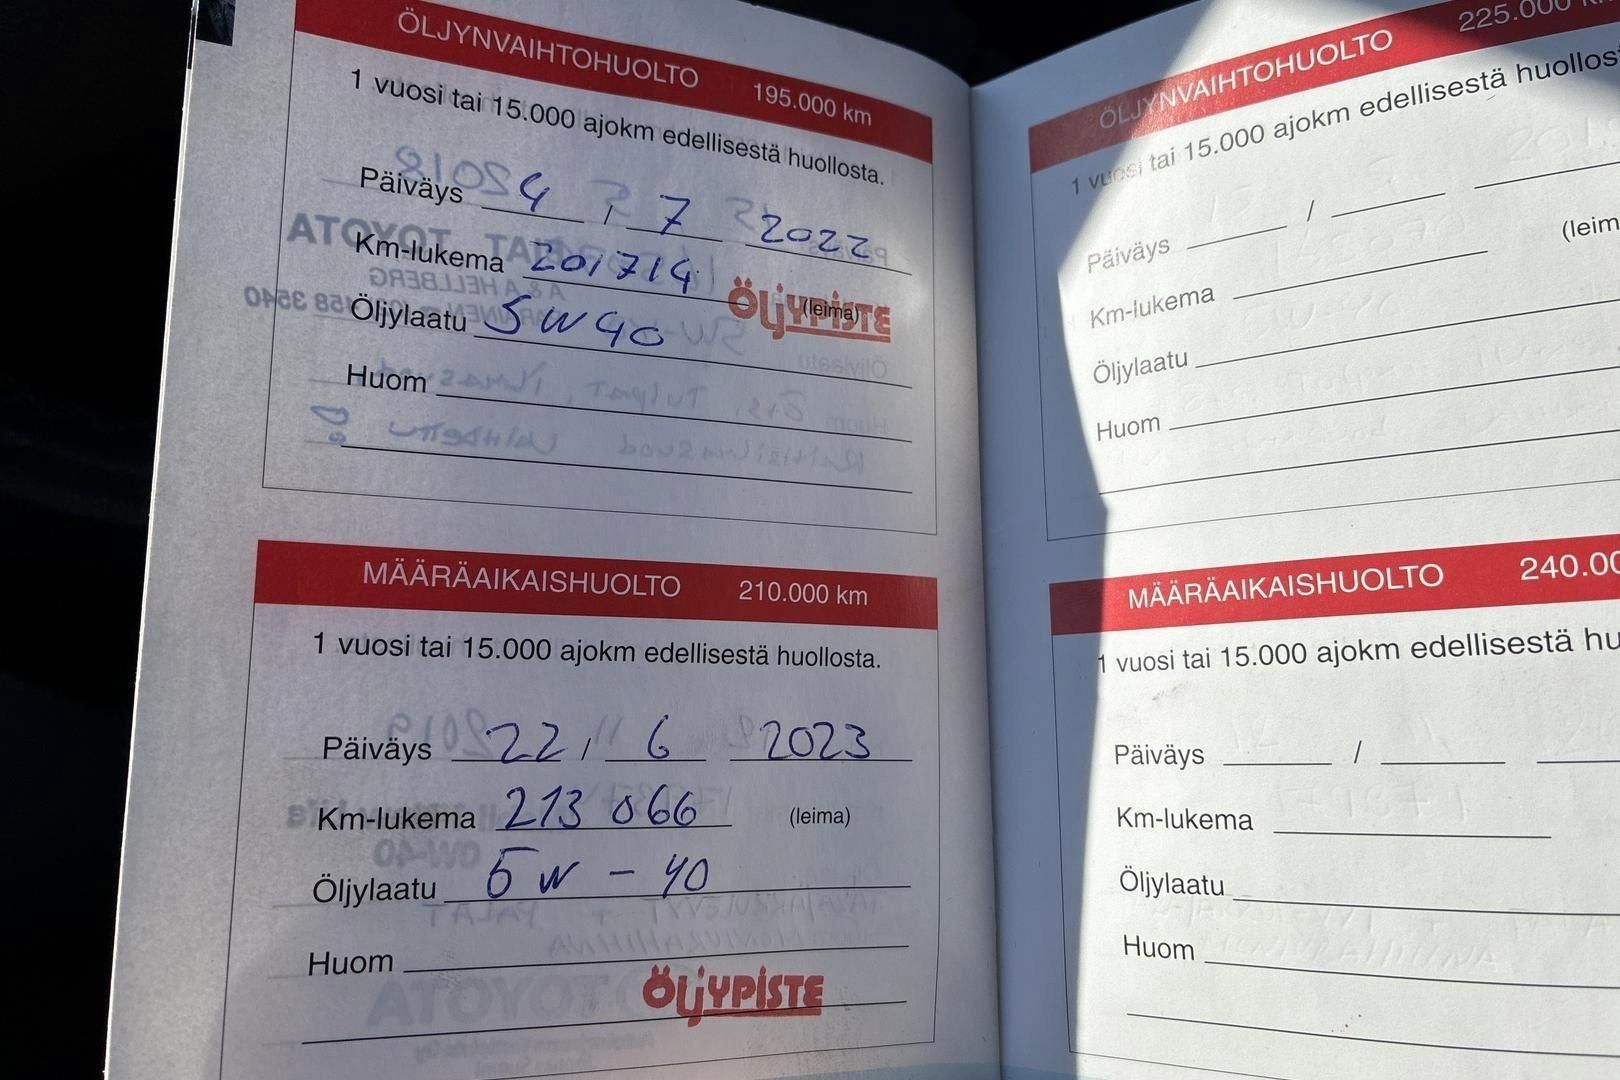 ÖLJYNVAIHTOHUOLTO 195.000 km
1 vuosi tai 15.000 ajokm edellisestä huollosta.
Päiväys 4 / 7 2022
Km-lukema 201714
ÖLJYPISTE (leima)
Öljylaatu 5W40
Huom
MÄÄRÄAIKAISHUOLTO 210.000 km
1 vuosi tai 15.000 ajokm edellisestä huollosta.
Päiväys 22 / 6 2023
Km-lukema 213 066 (leima)
Öljylaatu 5W-40
Huom
ÖLJYPISTE
ÖLJYNVAIHTOHUOLTO 225.000
1 vuosi tai 15.000 ajokm edellisestä huollos
Päiväys /
(leim
Km-lukema
Öljylaatu
Huom
MÄÄRÄAIKAISHUOLTO 240.00
1 vuosi tai 15.000 ajokm edellisestä hu
Päiväys /
Km-lukema
Öljylaatu
Huom